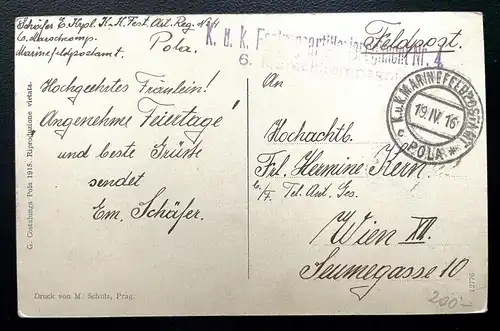 Schäfer E. Krpl. K. K. Fest. Art. Reg. No 4
6. Marschkomp.
Marinefeldpostamt
Pola.
K. u. k. Festungsartillerie Nr. 4
6. Marschkompagnie
Feldpost.
K.u.K. MARINEFELDPOSTAMT
19.IV.16
c POLA *
Hochgeehrtes Fräulein!
Angenehme Feiertage
und beste Grüße
sendet
Em. Schäfer.
An
Hochachtb.
Frl. Hermine Kern
Tel. Ges.
Wien XII.
Seumegasse 10
G. Costalunga Pola 1915. Riproduzione vietata.
Druck von M. Schulz, Prag.
12776
200.-